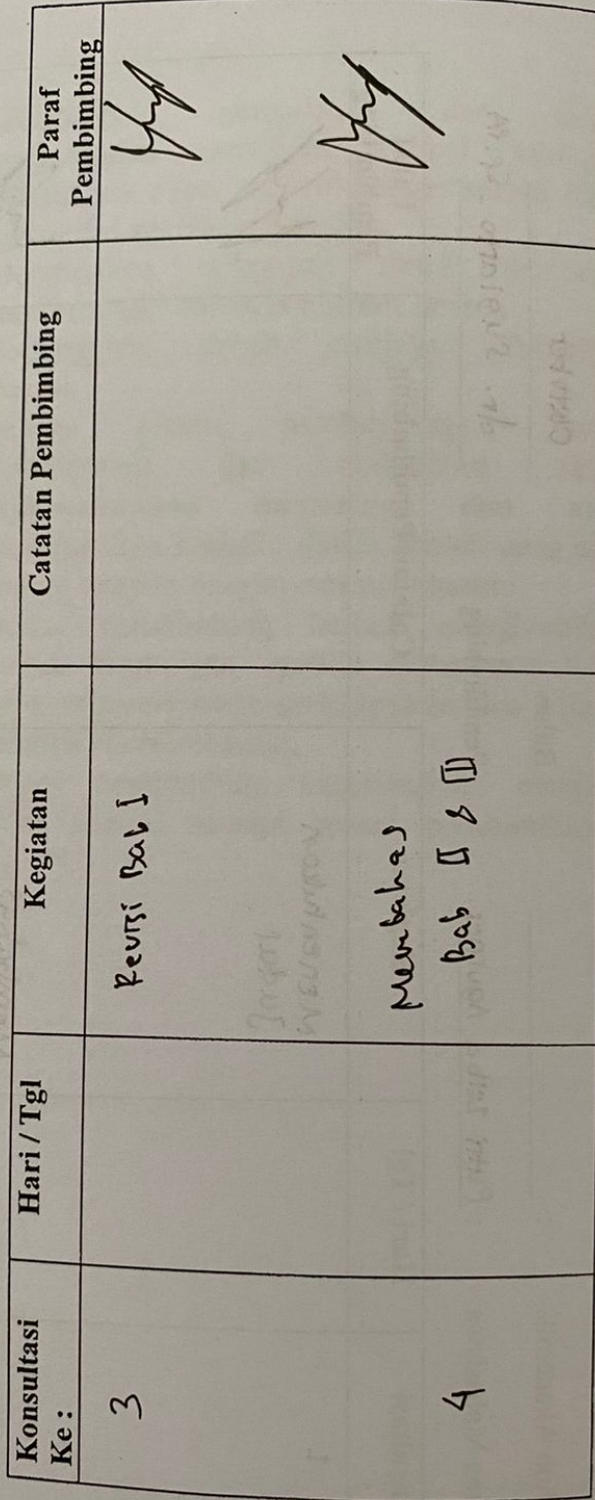 Konsultasi Ke :
Hari / Tgl
Kegiatan
Catatan Pembimbing
Paraf Pembimbing
3
Revisi Bab I
4
Membahas
Bab II & III